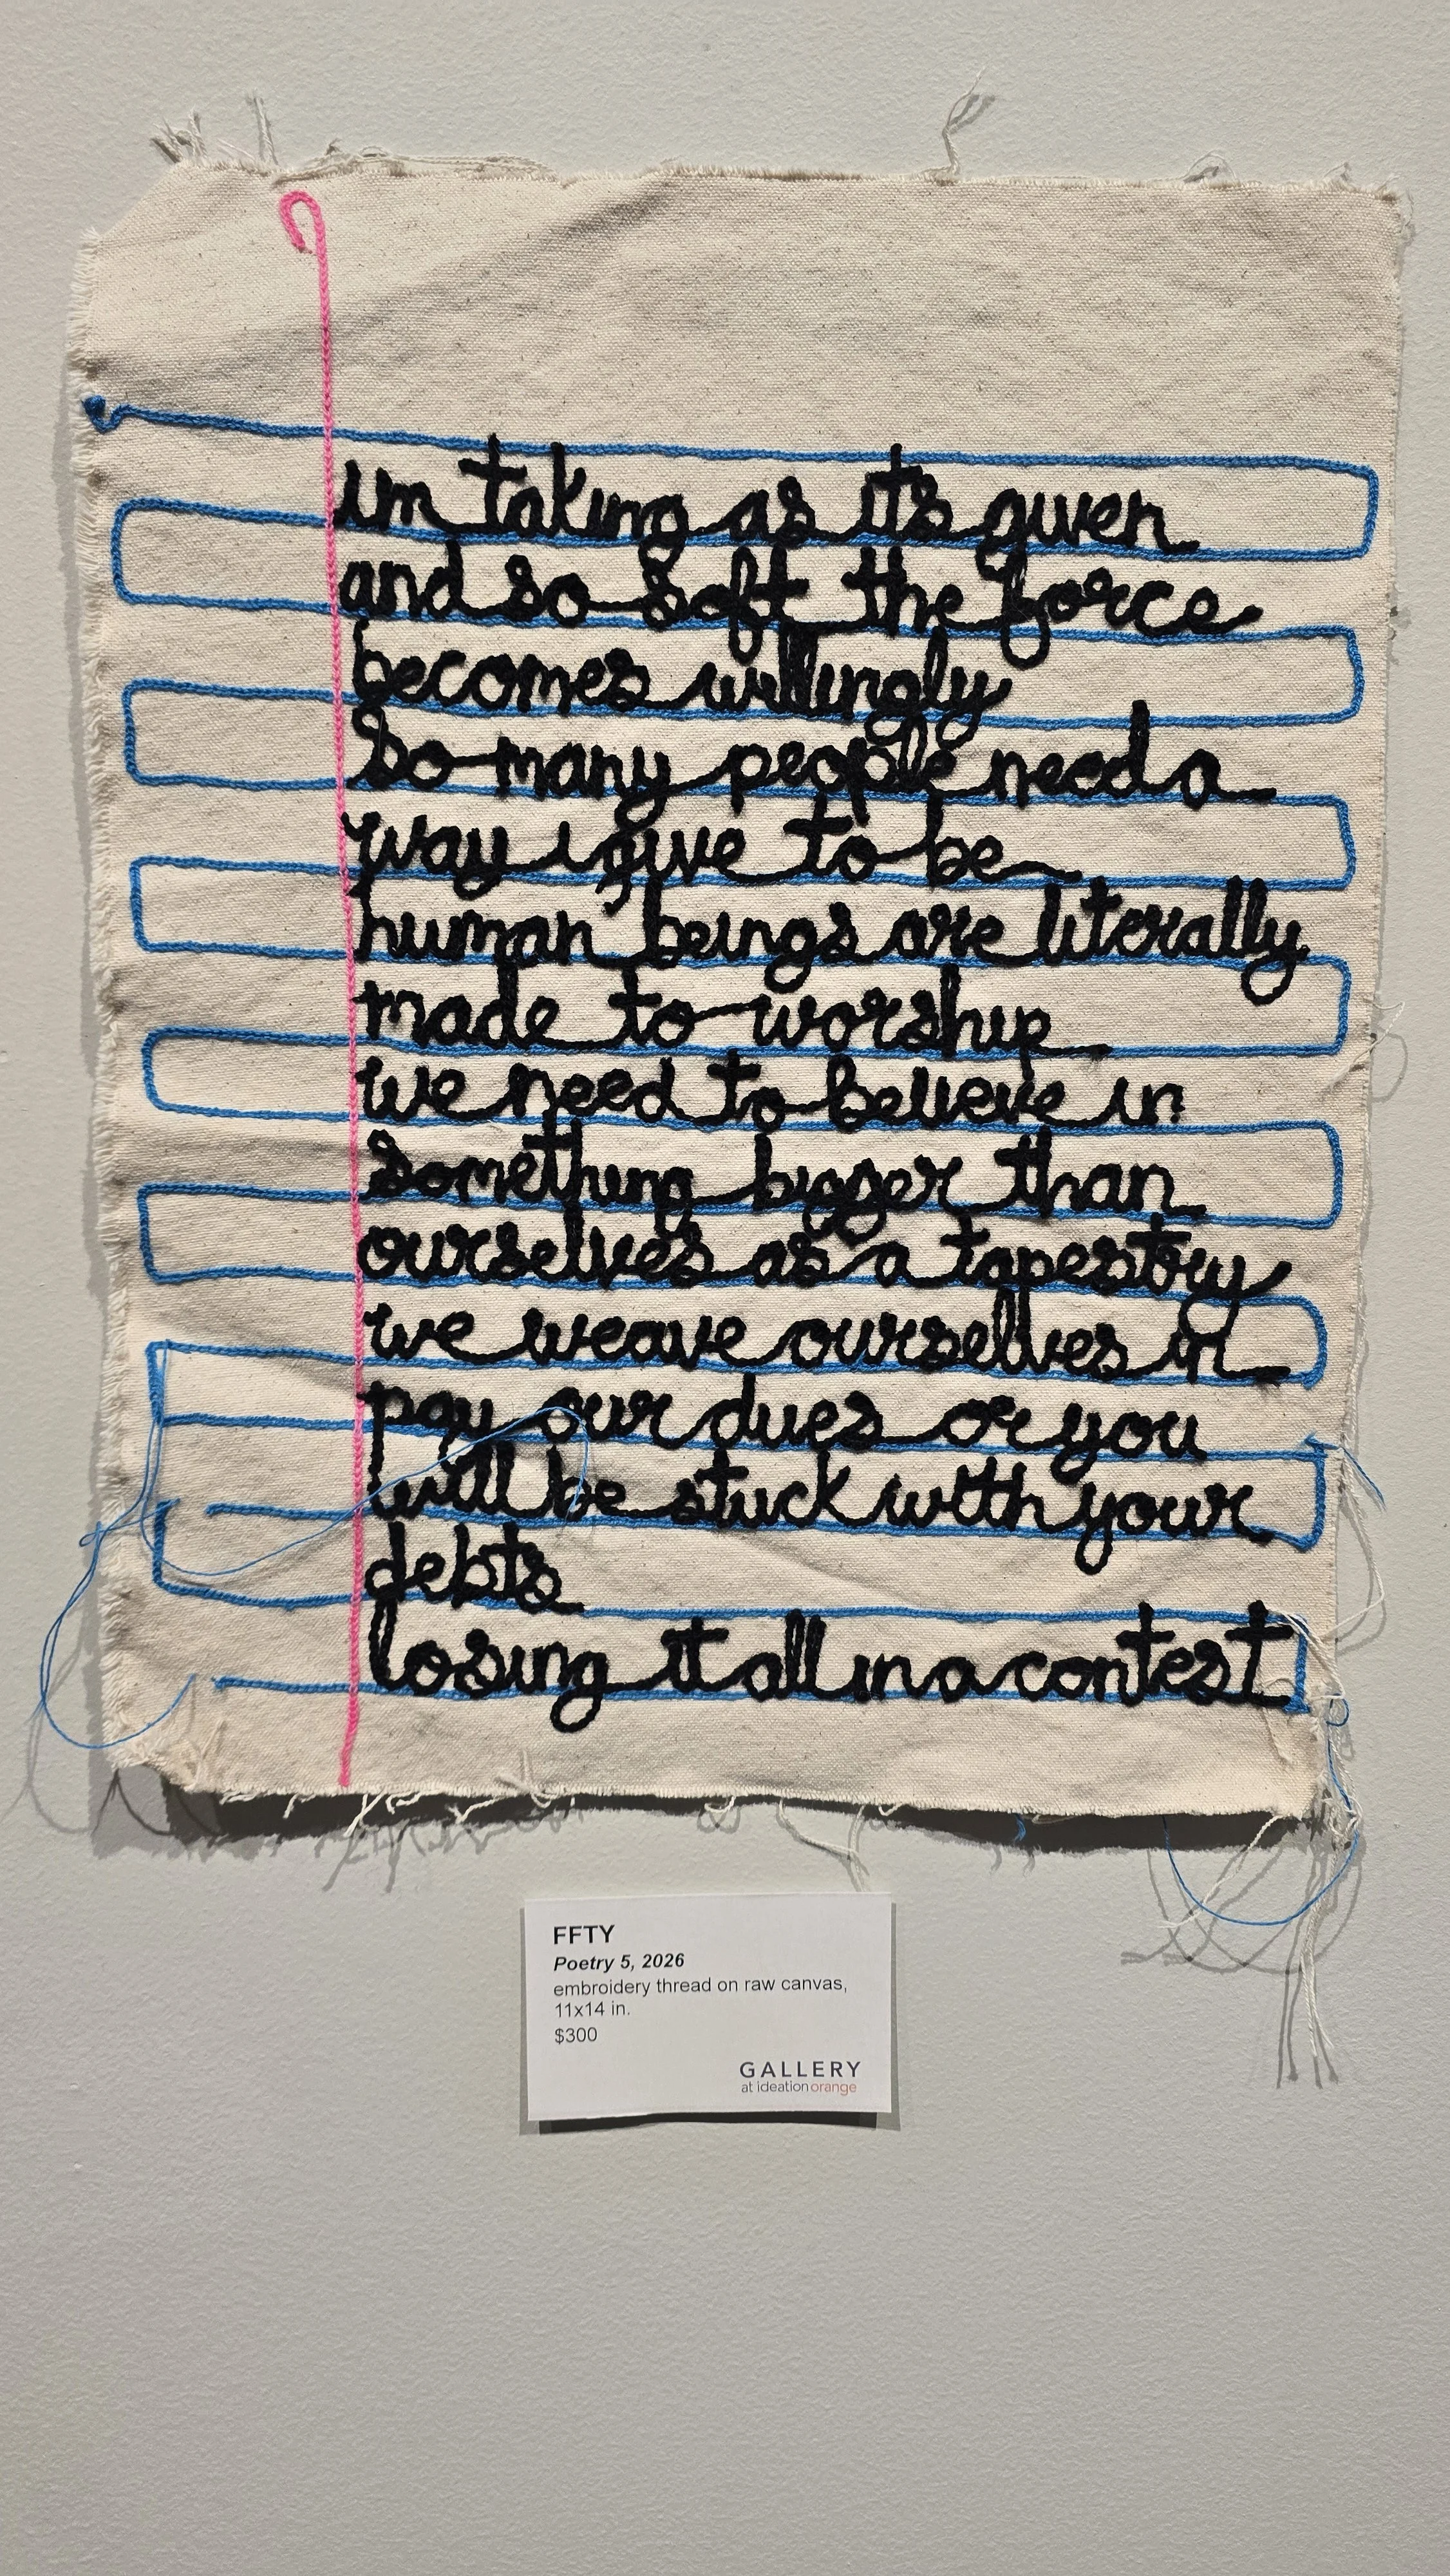 im taking as its given
and so soft the force
becomes willingly
so many people need a
way i give to be
human beings are literally
made to worship
we need to believe in
something bigger than
ourselves as a tapestry
we weave ourselves in
pay our dues or you
will be stuck with your
debts
losing it all in a contest
FFTY
Poetry 5, 2026
embroidery thread on raw canvas,
11x14 in.
$300
GALLERY
at ideationorange